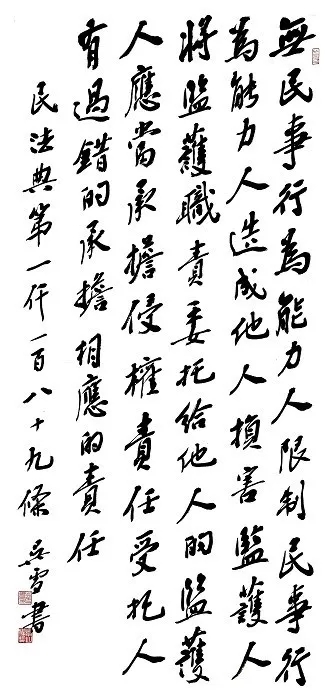 無民事行為能力人限制民事行
為能力人造成他人損害監護人
將監護職責委托給他人的監護
人應當承擔侵權責任受托人
有過錯的承擔相應的責任
民法典第一仟一百八十九條
吳雪書